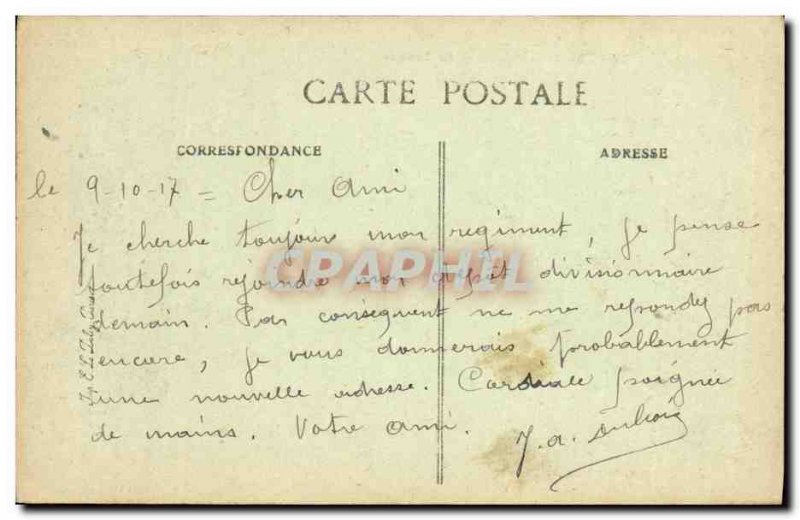 CARTE POSTALE
CORRESPONDANCE
ADRESSE
le 9-10-17 = Cher Ami
Je cherche toujours mon regiment, je pense
toutefois rejoindre mon dépôt divisionnaire
demain. Par conséquent ne me repondez pas
encore, je vous donnerais probablement
une nouvelle adresse. Cordiale poignée
de mains. Votre ami.
J. A.
CPAPHIL